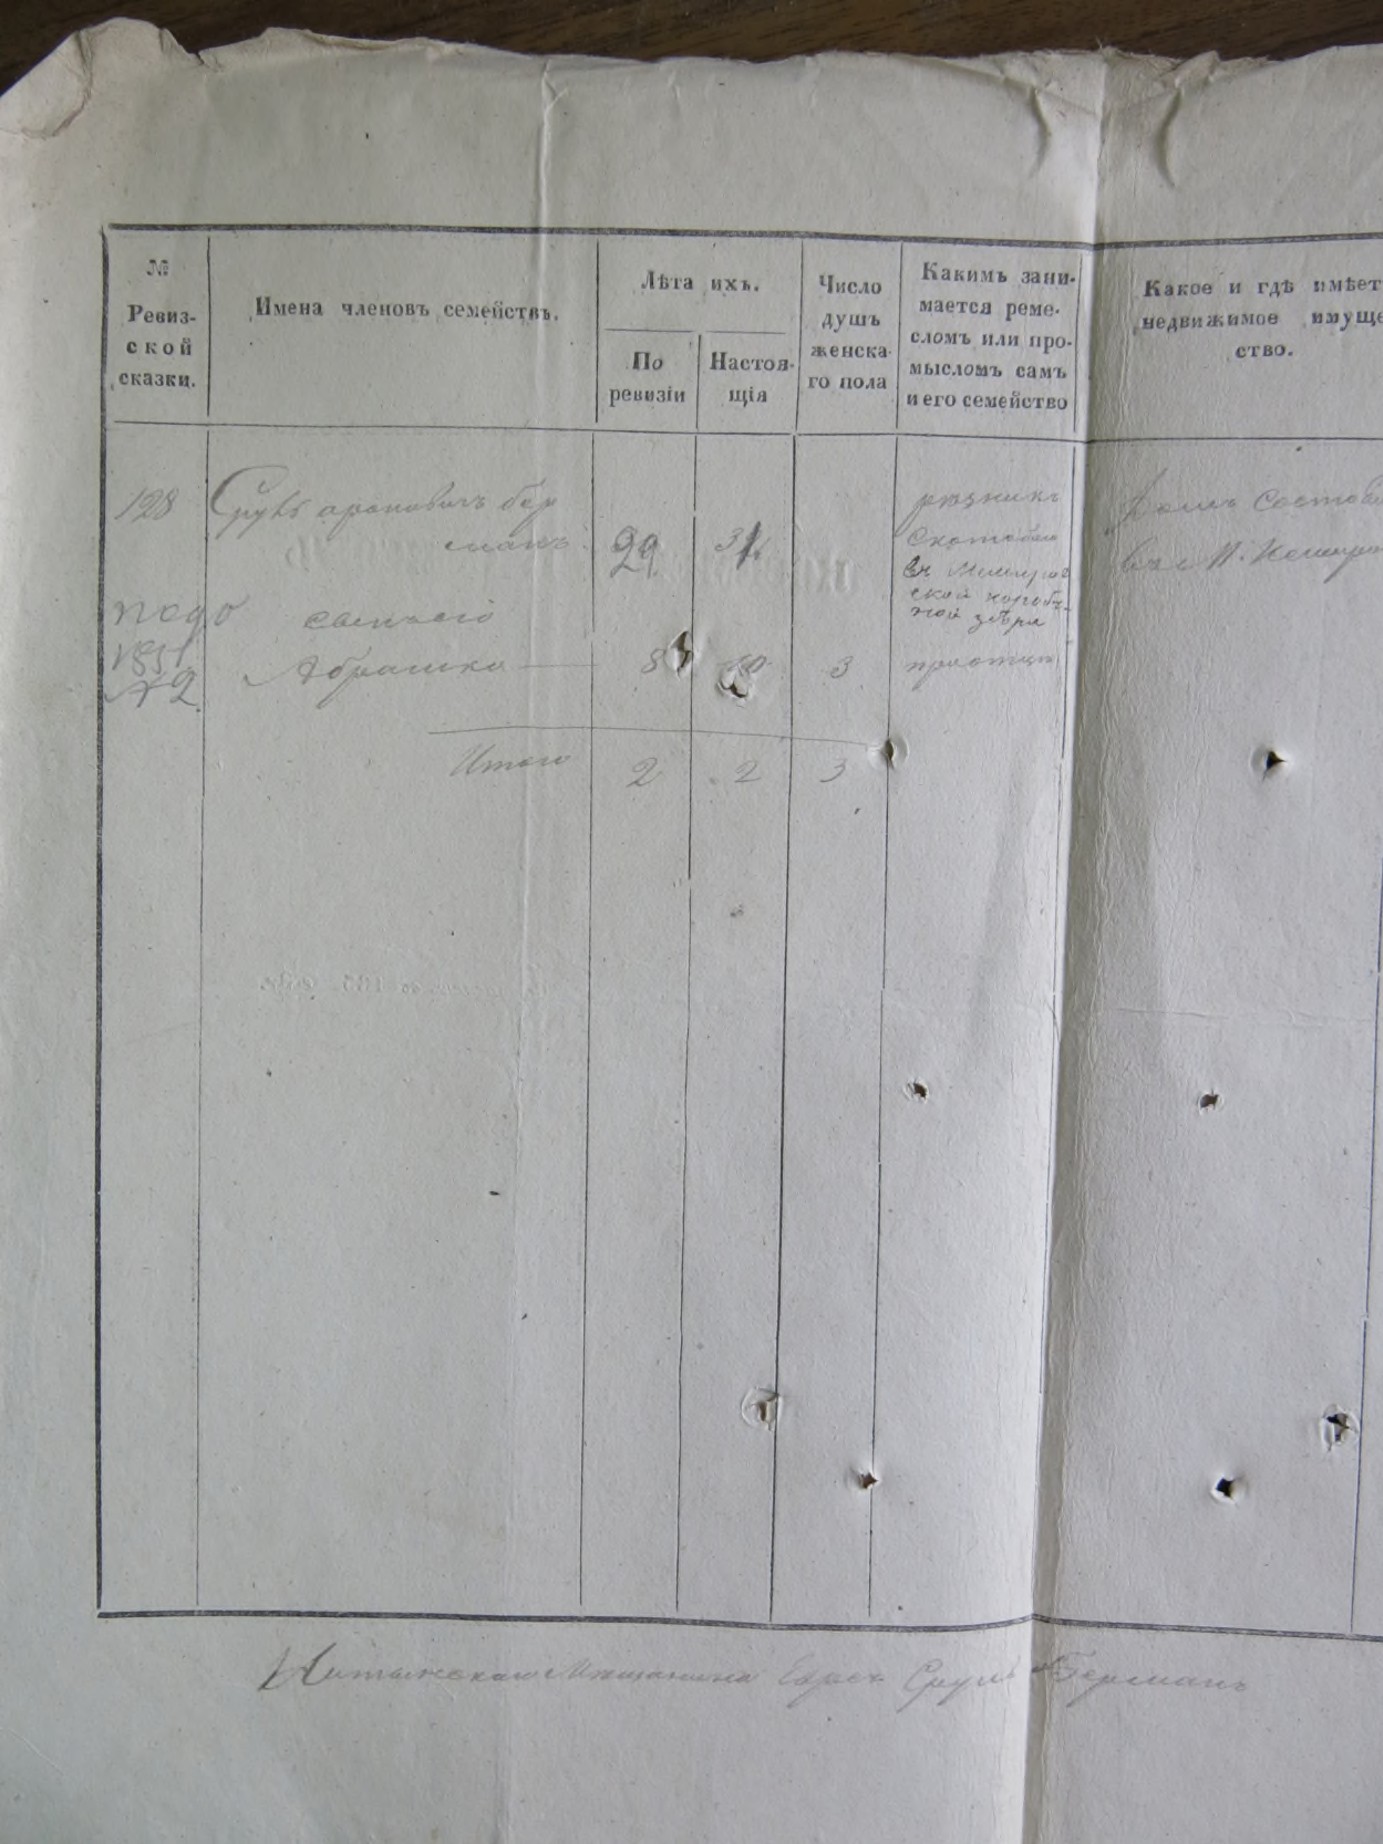 №
Ревиз-
ской
сказки.
Имена членовъ семействъ.
Лѣта ихъ.
По
ревизіи
Настоя-
щія
Число
душъ
женска-
го пола
Какимъ зани-
мается реме-
сломъ или про-
мысломъ самъ
и его семейство
Какое и гдѣ имѣет
недвижимое имуще
ство.
128 Сруль ароновичъ бер
манъ 29 31
рѣзникъ
скотобой
въ
ской коробо-
ной
домъ состо
въ М.
подо
1851
№2
Абрашка 8 10 3
Итого 2 2 3
Мещанина Еврея Сруля Берманъ